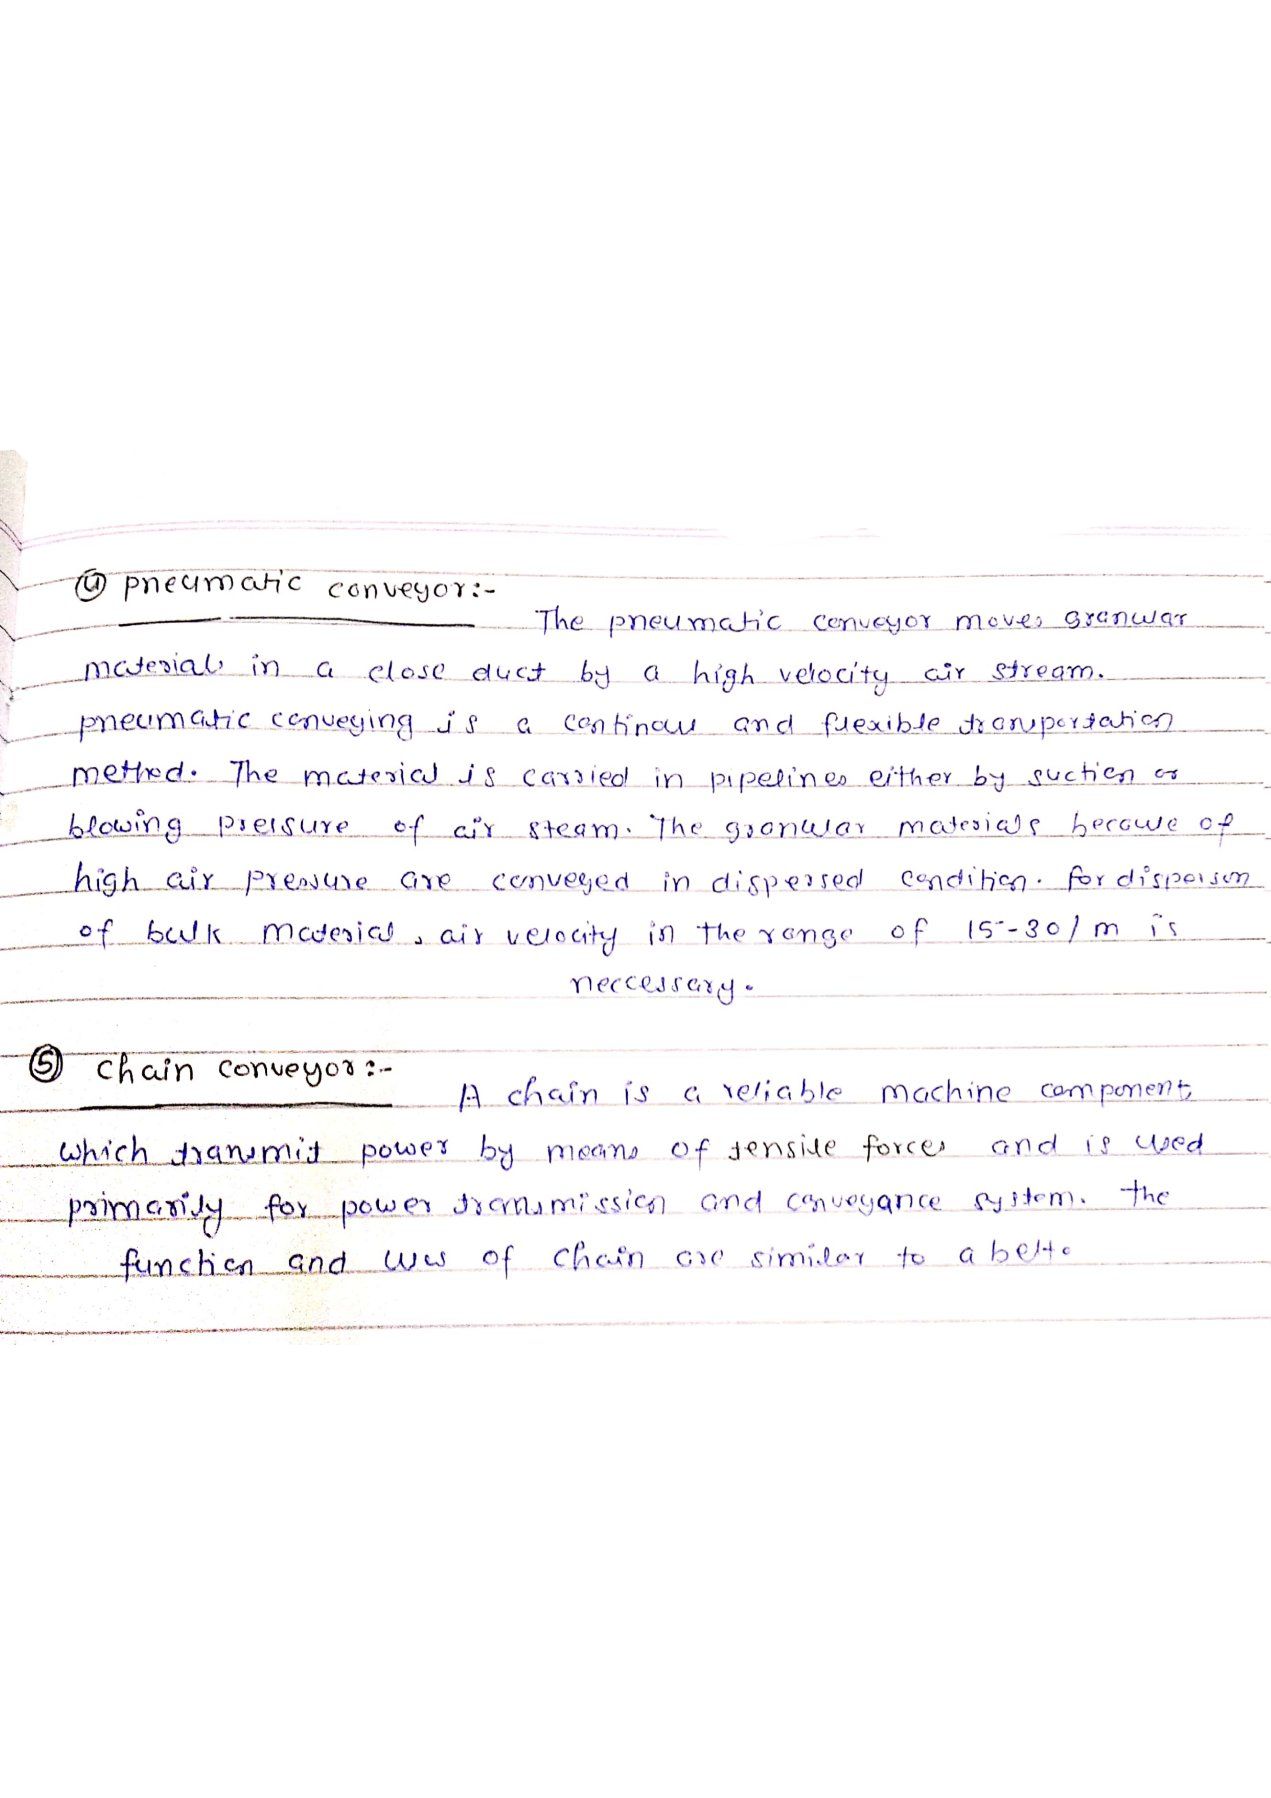 ④ pneumatic conveyor:-
The pneumatic conveyor moves granular
materials in a close duct by a high velocity air stream.
pneumatic conveying is a continous and flexible transportation
method. The material is carried in pipelines either by suction or
blowing pressure of air steam. The granular materials because of
high air pressure are conveyed in dispersed condition. for dispersion
of bulk material, air velocity in the range of 15-30/m is
neccessary.
⑤ chain conveyor:-
A chain is a reliable machine component,
which transmit power by means of tensile forces and is used
primarily for power transmission and conveyance system. the
function and uses of chain are similar to a belt.